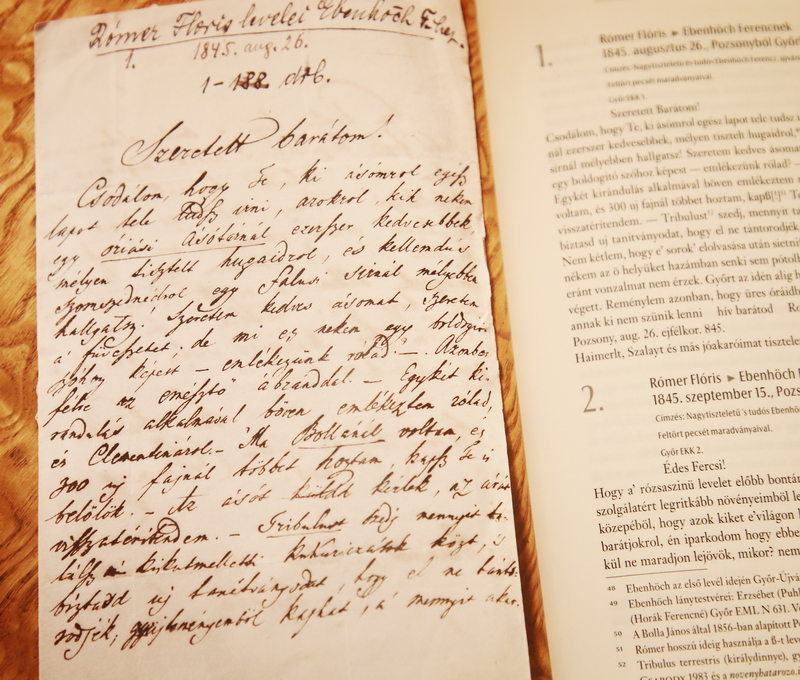 Rómer Flóris levelei Ebenhöch F.hez.
1. 1845. aug. 26.
1–188. drb.
Szeretett barátom!
Csodálom, hogy Te, ki ásómrol egész
lapot tele tudsz irni, azokról, kik nekem
egy óriási ásótornál ezerszer kedvesebbek
mélyen tisztelt hugaidrol, és kellemdús
szomszednéidrol egy falusi sirnál mélyebbe
hallgatsz! Szeretem kedves ásomat, szeretem
a' füvészetet; de mi ez nekem egy boldogito
szohoz kepest — emlékezünk rólad? —
félre az emésztő ábranddal. — Egykét ki-
randulás alkalmával bőven emlékeztem rólad,
és Clementináról. — Ma Bollánál voltam, es
300 uj fajnál többet hoztam, kapsz Te is
belőlök. — Az ásót küldd kérlek, az árát
visszatéritendem. — Tribulust szedj mennyit
találsz kukuriczások közt, 's
biztasd uj tanitványodat, hogy el ne tánto-
rodjék, gyüjteményemből kaphat, a' mennyit akar.
1.
Rómer Flóris ► Ebenhöch Ferencnek
1845. augusztus 26., Pozsonyból Győr
Feltört pecsét maradványaival.
Győr EKK 1.
Szeretett Barátom!
Csodálom, hogy Te, ki ásómrol egész lapot tele tudsz
nál ezerszer kedvesebbek, mélyen tisztelt hugaidrol,
sirnál mélyebben hallgatsz! Szeretem kedves ásoma
egy boldogitó szóhoz képest — emlékezünk rólad? —
Egykét kirándulás alkalmával bőven emlékeztem
voltam, és 300 uj fajnál többet hoztam, kapß[!] Te
visszatéritendem. — Tribulust szedj, mennyit ta
biztasd uj tanitványodat, hogy el ne tántorodjék,
Nem kétlem, hogy e' sorok' elolvasása után sietni
nékem az ő helyüket hazámban senki sem pótolh
eránt vonzalmat nem érzek. Győrt az idén alig h
végett. Reménylem azonban, hogy üres óráidb
annak ki nem szünik lenni hív barátod Ró
Pozsony, aug. 26. ejfélkor. 845.
Haimerlt, Szalayt és más jóakaróimat tisztele
2.
Rómer Flóris ► Ebenhöch
1845. szeptember 15., Pozs
Címzés: Nagytiszteletű 's tudós Ebenhö
Feltört pecsét maradványaival.
Győr EKK 2.
Édes Fercsi!
Hogy a' rózsaszinü levelet előbb bontá
szolgálatért legritkább növényimből le
közepéből, hogy azok kiket e'világon l
barátjokról, én iparkodom hogy ebbe
kül ne maradjon lejövök, mikor? nem
48 Ebenhöch az első levél idején Győr-Újvá
49 Ebenhöch lánytestvérei: Erzsébet (Puhl
(Horák Ferencné) Győr EML N 631. Vö
50 A Bolla János által 1856-ban alapított Po
51 Rómer hosszú ideig használja a ß-t leve
52 Tribulus terrestris (királydinnye), gy
1983 és a novenyhatarozo.